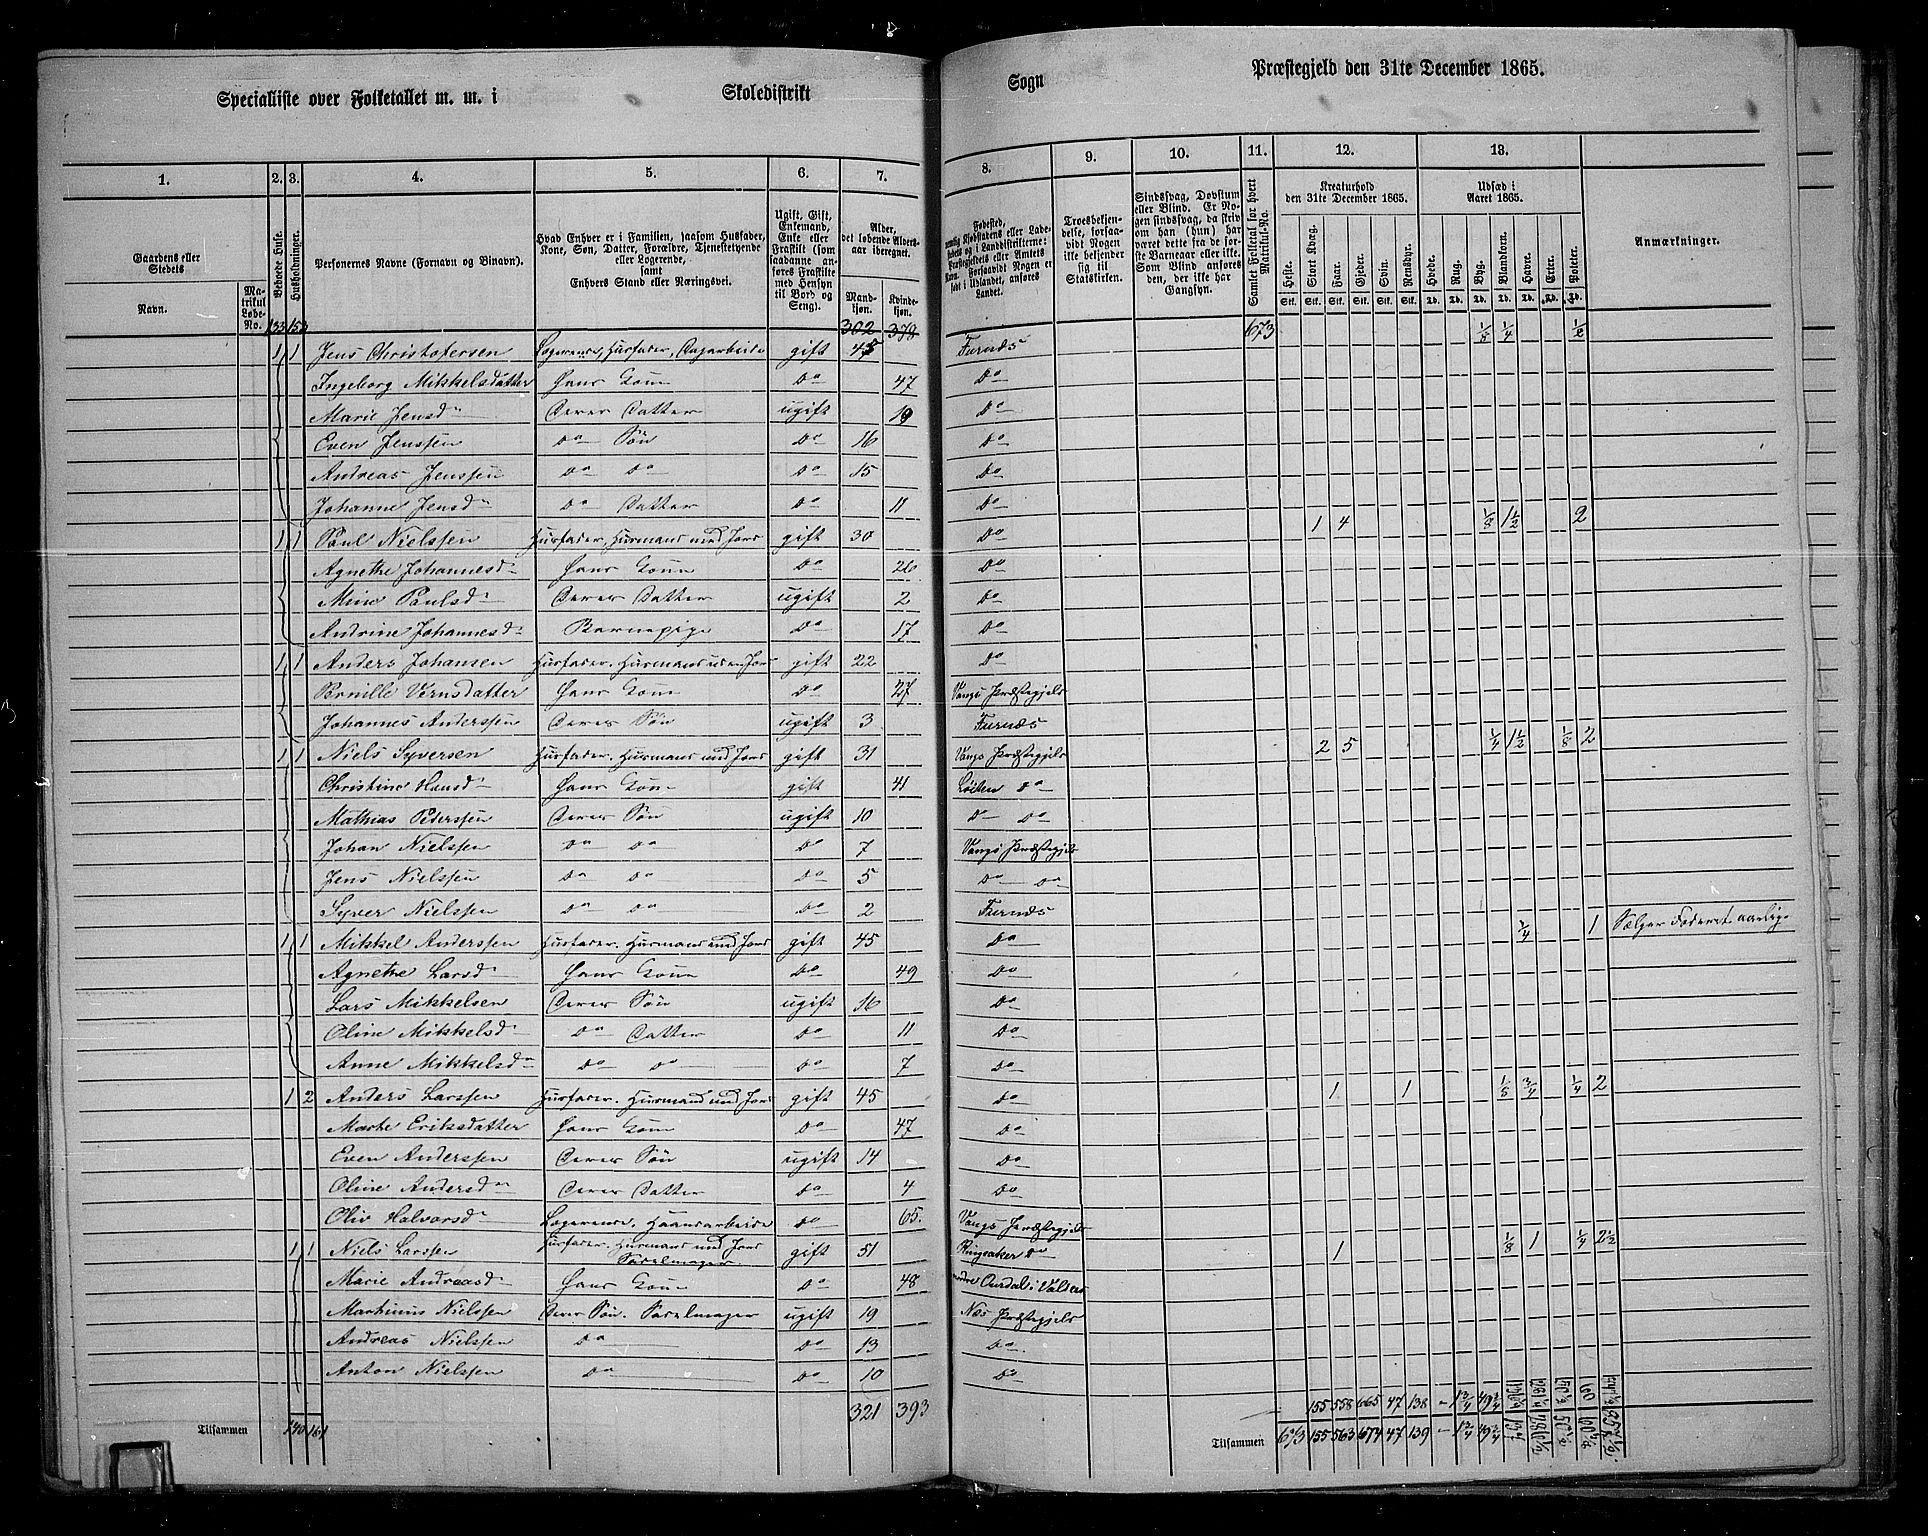 Specialliste over Folketallet m. m. i Skoledistrikt Sogn Præstegjeld den 31te December 1865.
1. 2. 3. 4. 5. 6. 7. 8. 9. 10. 11. 12. 13.
Gaardens eller Stedets
Navn.
Matrikul Løbe-No.
Bebode Huse.
Husholdninger.
Personernes Navne (Fornavn og Binavn).
Hvad Enhver er i Familien, saasom Husfader, Kone, Søn, Datter, Forældre, Tjenestetyende eller Logerende, samt Enhvers Stand eller Næringsvei.
Ugift, Gift, Enkemand, Enke eller Fraskilt (som saadanne anføres Fraskilte med Hensyn til Bord og Seng).
Alder, det løbende Aldersaar iberegnet.
Mandkjøn. Kvindekjøn.
Troesbekjendelse, forsaavidt Nogen ikke bekjender sig til Statskirken.
Sindssvag, Døvstum eller Blind. Er Nogen sindssvag, da skrives om han (hun) har været dette fra de første Barneaar eller ikke. Som Blind anføres den, der ikke har Gangsyn.
Samlet Folketal for hvert Matrikul-No.
Kreaturhold den 31te December 1865.
Heste. Stort Kvæg. Faar. Geder. Svin. Rensdyr.
Udsæd i Aaret 1865.
Hvede. Rug. Byg. Blandkorn. Havre. Erter. Poteter.
Anmærkninger.
133 152 302 378 673 1/8 1/4 1/2
1 1 Jens Christofersen Logerende, Husfader, Dagarbeide gift 45 Furnæs
Ingeborg Mikkelsdatter Hans Kone Do 47 Do
Marie Jensd Deres Datter ugift 19 Do
Even Jenssen Do Søn Do 16 Do
Andreas Jenssen Do Do Do 15 Do
Johanne Jensd Do Datter Do 11 Do
1 1 Paul Nielssen Husfader, Husmand med Jord gift 30 Do 1 4 1/8 1 1/2 2
Agnethe Johannesd Hans Kone Do 26 Do
Mine Paulsd Deres Datter ugift 2 Do
Andrine Johannesd Barnepige Do 17 Do
1 1 Anders Johansen Husfader. Husmand uden Jord gift 22 Do
Pernille Vernsdatter Hans Kone Do 27 Vangs Præstegjeld
Johannes Anderssen Deres Søn ugift 3 Furnæs
1 1 Niels Syversen Husfader. Husmand med Jord gift 31 Vangs Præstegjeld 2 5 1/4 1 1/2 1/8 2
Christine Hansd Hans Kone gift 41 Løiten Do
Mathias Pederssen Deres Søn ugift 10 Do Do
Johan Nielssen Do Do Do 7 Vangs Præstegjeld
Jens Nielssen Do Do Do 5 Do Do
Syver Nielssen Do Do Do 2 Furnæs
1 1 Mikkel Anderssen Husfader. Husmand med Jord gift 45 Do 1/4 1 Sælger Foderet aarlig
Agnethe Larsd Hans Kone Do 49 Do
Lars Mikkelsen Deres Søn ugift 16 Do
Oline Mikkelsd Do Datter Do 11 Do
Anne Mikkelsd Do Do Do 7 Do
1 2 Anders Larssen Husfader. Husmand med Jord gift 45 Do 1 1 1/8 3/4 1/4 2
Marthe Eriksdatter Hans Kone Do 47 Do
Even Anderssen Deres Søn ugift 14 Do
Oline Andersd Deres Datter Do 4 Do
Oliv Halvorsd Logerende. Haandarbeide Do 65. Vangs Præstegjeld
1 1 Niels Larssen Husfader. Husmand med Jord Sadelmager. gift 51 Ringsaker Do 1 1/8 1 1/4 2 1/2
Marie Andreasd Hans Kone Do 48 nordre Ourdal i Valders
Martinus Nielssen Deres Søn. Sadelmager ugift 19 Næs Præstegjeld
Andreas Nielssen Do Do 13 Do
Anton Nielssen Do Do 10 Do
321 393 155 558 665 47 138
Tilsammen 140 161 Tilsammen 673 155 563 674 47 139